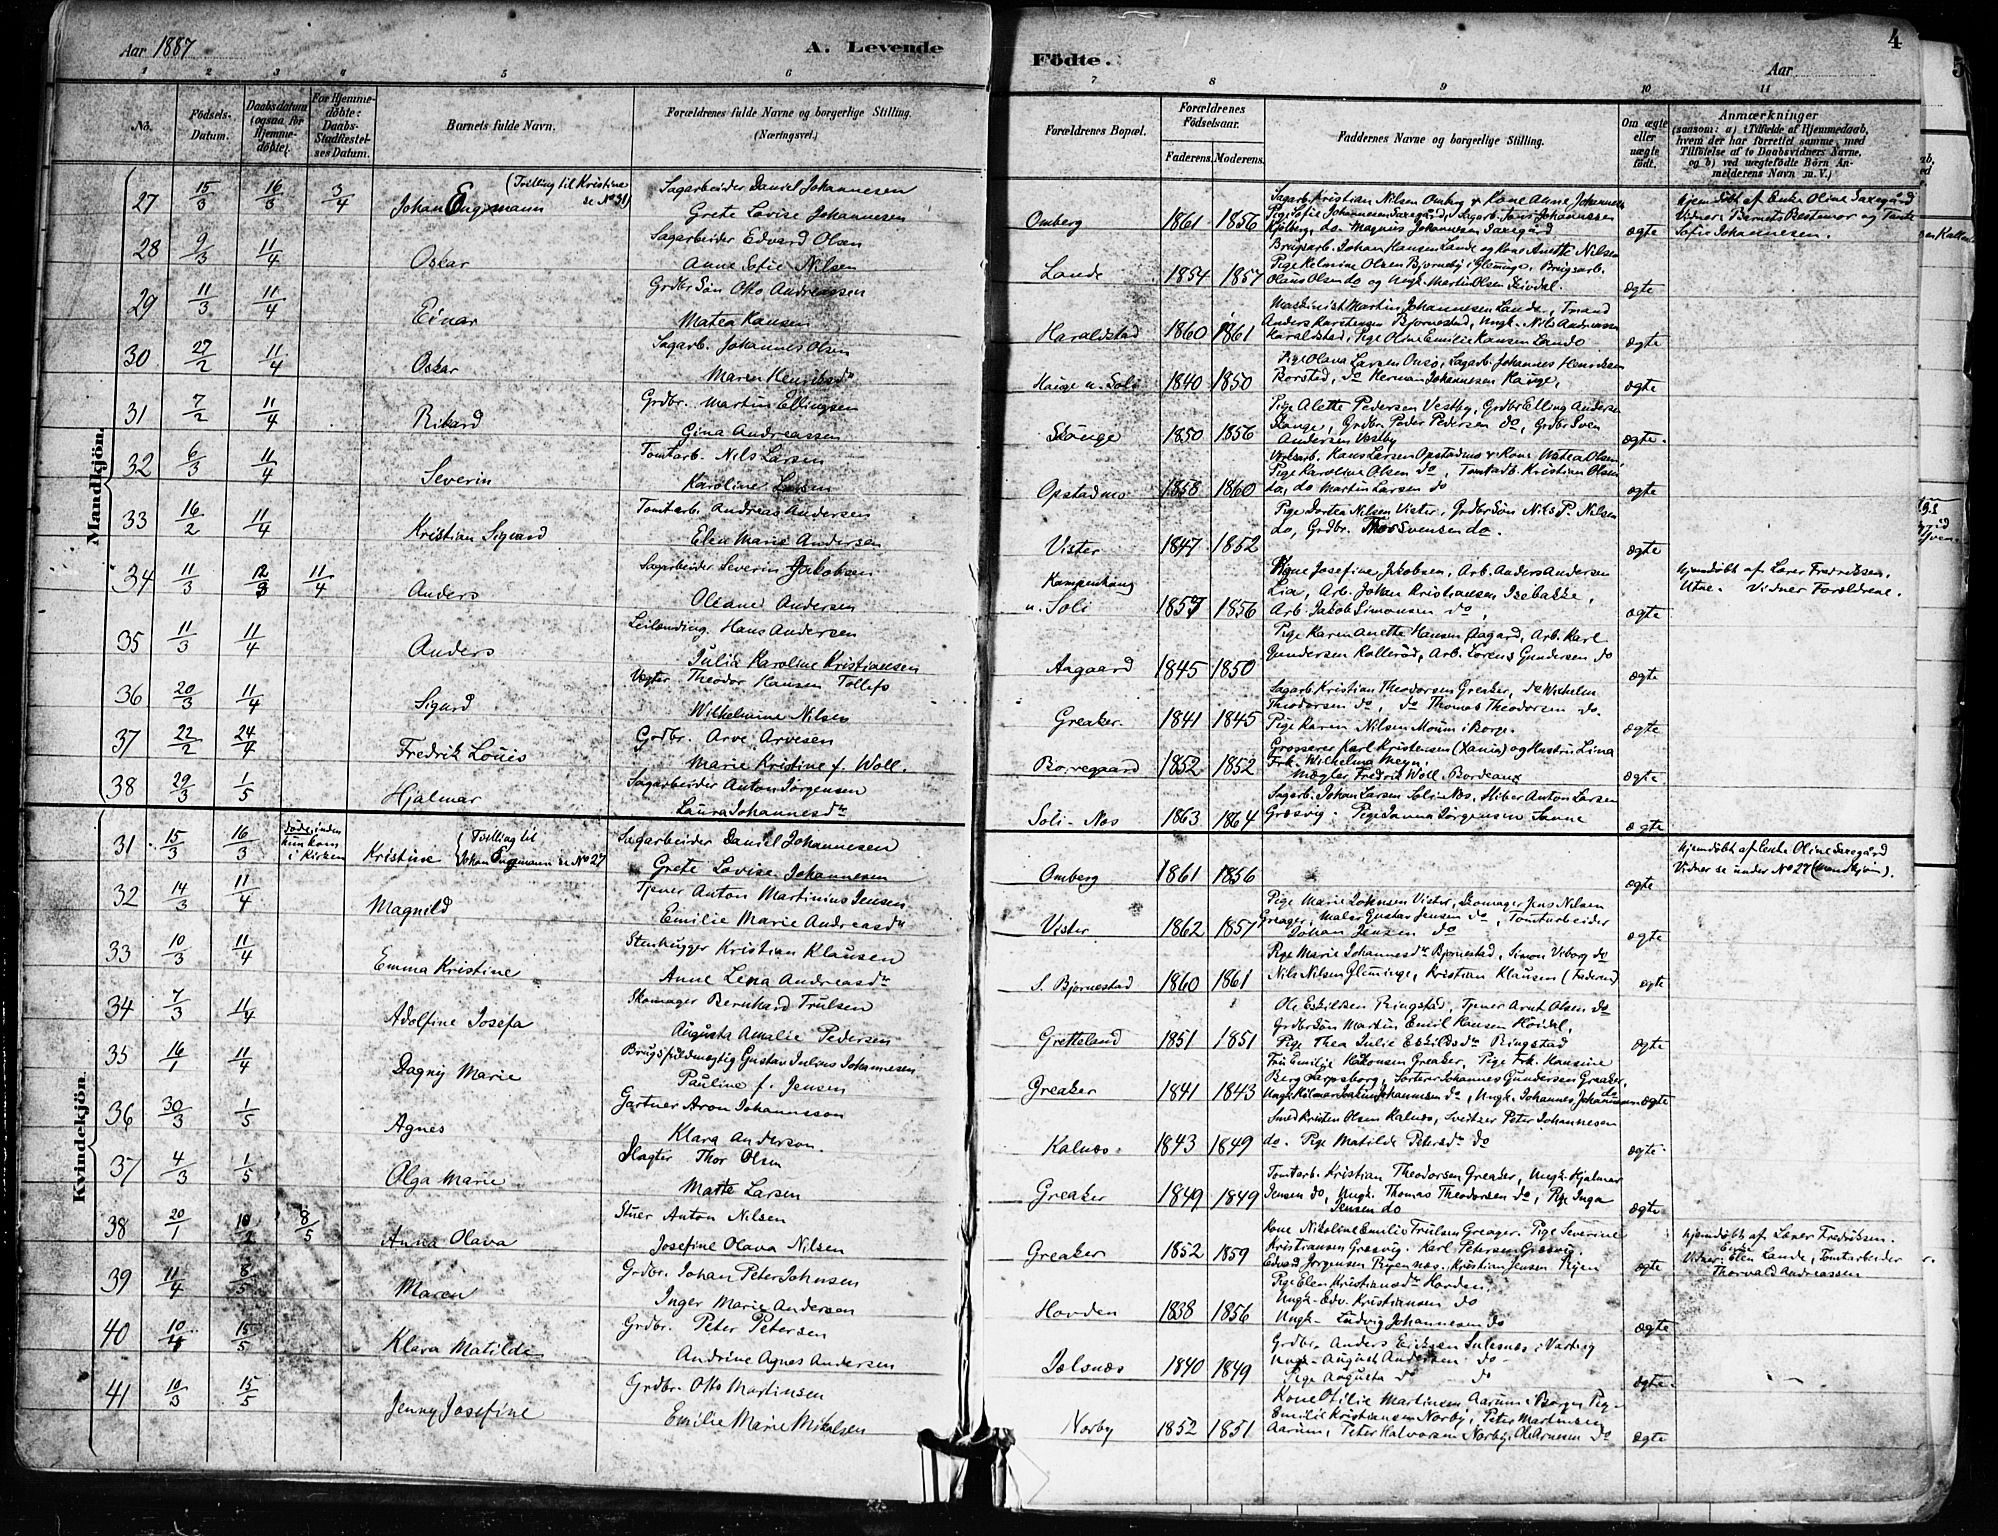 Aar 1887
A. Levende
Födte.
Aar
4
1 2 3 4 5 6 7 8 9 10 11
No.
Födsels-
Datum.
Daabsdatum
(ogsaa for
Hjemme-
döbte).
For Hjemme-
döbte:
Daabs-
Stadfæstel-
ses Datum.
Barnets fulde Navn.
Forældrenes fulde Navne og borgerlige Stilling.
(Næringsvei.)
Forældrenes Bopæl.
Forældrenes
Födselsaar.
Faderens. Moderens.
Faddernes Navne og borgerlige Stilling.
Om ægte
eller
uægte
födt.
Anmærkninger
(saasom: a) i Tilfælde af Hjemmedaab,
hvem der har forrettet samme, med
Tilföielse af to Daabsvidners Navne,
og b) ved uægtefödte Börn An-
melderens Navn m. V.)
Mandkjön.
27 15/3 16/3 3/4 Johan Engemann (Tvilling til Kristine se No 31)
Sagarbeider Daniel Johannesen
Grete Lovise Johannesen
Omberg 1861 1856
Sagarb. Kristian Nilsen Omberg & Kone Anne Johannesen
Pige Sofie Johannesen Saxegård, Sagarb. Jens Johannesen
Kjølberg, do Magnus Johannesen Saxegård
ægte
Hjemdøbt af Enke Oline Saxegård
Vidner Barnets Bestemor og Tante
Sofie Johannesen.
28 9/3 11/4 Oskar
Sagarbeider Edvard Olsen
Anne Sofie Nilsen
Lande 1854 1857
Brugsarb. Johan Hansen Lande og Kone Anette Nilsen
Pige Kelmine Olsen Bjørneby i Glemmge, Brugsarb.
Olaus Olsen do og Ungk. Martin Olsen
ægte
29 11/3 11/4 Einar
Grdbr Søn Otto Andreassen
Matea Hansen
Haraldstad 1860 1861
Maskinist Martin Johannesen Lande, Tmand
Anders Karstensen Bjørnestad, Ungk. Nils Andreassen
Haraldstad, Pige Oline Emilie Hansen Lande
ægte
30 27/2 11/4 Oskar
Sagarb. Johannes Olsen
Maren Henriksdr
Hauge u. Soli 1840 1850
Pige Olava Larsen Onsø, Sagarb. Johannes Henriksen
Borstad, do Herman Johannesen Hauge,
ægte
31 7/2 11/4 Rikard
Grdbr. Martin Ellingsen
Gina Andreassen
Skånge 1850 1856
Pige Alette Pedersen Vestby, Grdbr Elling Andersen
Skånge, Grdbr. Peder Pedersen do, Grdbr Sven
Andersen Vestby
ægte
32 6/3 11/4 Severin
Tomtarb. Nils Larsen
Karoline Larsen
Opstadmo 1858 1860
Hans Larsen Opstadmo & Kone Matea Olsen,
Pige Karoline Olsen do, Tomtarb. Kristian Olsen
do, do Martin Larsen do
ægte
33 16/2 11/4 Kristian Sigvard
Tomtarb. Andreas Andersen
Elen Marie Andersen
Vister 1847 1852
Pige Dortea Nilsen Vister, Grdbr Søn Nils P. Nilsen
do, Grdbr. Thor Svensen do.
ægte
34 11/3 12/3 11/4 Anders
Sagarbeider Severin Jakobsen
Oleane Andersen
Kampenhaug
u. Soli 1857 1856
Kone Josefine Jakobsen, Arb. Anders Andersen
Lia, Arb. Johan Kristiansen Isebakke,
Arb. Jakob Simonsen do,
ægte
Hjemdøbt af Lærer Fredriksen,
Utne. Vidner Forældrene.
35 11/3 11/4 Anders
Leilænding. Hans Andersen
Julia Karoline Kristiansen
Aagaard 1845 1850
Pige Karen Anette Hansen Aagard, Arb. Karl
Gundersen Rollerød, Arb. Lorens Gundersen do
ægte
36 20/3 11/4 Sigurd
Vægter Theodor Hansen Tollefs
Wilhelmine Nilsen
Greaker. 1841 1845
Sagarb. Kristian Theodorsen Greaker, do Wilhelm
Theodorsen do, do Thomas Theodorsen do.
Pige Karen Nilsen Moum i Borge.
ægte
37 22/2 24/4 Fredrik Louis
Grdbr. Arve Arvesen
Marie Kristine f. Woll.
Borregaard 1852 1852
Grosserer Karl Kristensen (Xania) og Hustru Lina
Frk. Wilhelma Meyn,
Mægler Fredrik Woll. Bordeaux
ægte
38 29/3 1/5 Hjalmar
Sagarbeider Anton Jørgensen
Laura Johannesdr
Soli-Næs 1863 1864
Sagarb. Johan Larsen Soli-Næs, Stiber Anton Larsen
Græsvig. Pige Janna Jørgensen Sanne
ægte
Kvindekjön.
31 15/3 16/3 døde inden
hun kom
i Kirken
Kristine (Tvilling til
Johan Engemann se No 27
Sagarbeider Daniel Johannesen
Grete Lovise Johannesen
Omberg 1861 1856
ægte
Hjemdøbt af Enke Oline Saxegård
Vidner se under No 27 (Mandkjøn).
32 14/3 11/4 Magnild
Tjener Anton Martinius Jensen
Emilie Marie Andreasdr
Vister 1862 1857
Pige Marie Johnsen Vister, Skomager Jens Nilsen
Greager, Maler Gustav Jensen do, Tomtarbeider
Johan Jensen do
ægte
33 10/3 11/4 Emma Kristine
Stenhugger Kristian Klausen
Anne Lena Andreasdr
S. Bjørnestad 1860 1861
Pige Marie Johannesdr Bjørnestad, Simon Viborg do
Nils Nilsen Glemmge, Kristian Klausen (Faderen)
ægte
34 7/3 11/4 Adolfine Josefa
Skomager Bernhard Trulsen
Augusta Amalie Pedersen
Gretteland 1851 1851
Ole Eskildsen Ringstad, Tjener Arnt Olsen do
Grdbr Søn Martin Emil Hansen Hoidal,
Pige Thea Julie Eskildsdr Ringstad
ægte
35 16/1 11/4 Dagny Marie
Brugsfuldmægtig Gustav Julius Johannesen
Pauline f. Jensen
Greaker 1841 1843
Fru Emilie Håkonsen Greaker, Pige Frk. Hansine
Berg Sarpsborg, Sorterer Johannes Gundersen Greaker,
Ungk. Hilmar Joakim Johannesen do, Ungk. Johannes Johannesen do
ægte
36 30/3 1/5 Agnes
Gartner Aron Johannsson
Klara Anderson.
Kalnæs 1843 1849
Smed Kristen Olsen Kalnæs, Sveitser Peter Johannesen
do. Pige Matilde Petersdr do
ægte
37 4/3 1/5 Olga Marie
Slagter Thor Olsen
Marte Larsen
Greaker 1849 1849
Tomtarb. Kristian Theodorsen Greaker, Ungk. Hjalmar
Jensen do, Ungk. Thomas Theodorsen do, Pige Inga
Jensen do
ægte
38 20/1 10/2 8/5 Anna Olava
Stuer Anton Nilsen
Josefine Olava Nilsen
Greaker 1852 1859
Kone Nikoline Emilie Trulsen Greager. Pige Severine
Kristiansen Græsvig. Karl Petersen Græsvig.
Edvard Jørgensen Rejennæs. Kristian Jensen Rejen
ægte
Hjemdøbt af Lærer Fredriksen.
Vidner: Enke Elen Lande, Tomtarbeider
Thorvald Andreassen
39 11/4 8/5 Maren
Grdbr. Johan Peter Johnsen
Inger Marie Andersen
Hovden 1838 1856
Pige Elen Kristiansdr Hovden,
Ungk. Edv. Kristiansen do
Ungk. Ludvig Johannesen do
ægte
40 10/4 15/5 Klara Matilde
Grdbr. Peter Petersen
Andrine Agnes Andersen
Jælsnæs 1840 1849
Grdbr. Anders Eriksen Julesnæs i Varteig
Ungk. August Andersen do
Pige Augusta do do
ægte
41 10/3 15/5 Jenny Josefine
Grdbr. Otto Martinsen
Emilie Marie Mikalsen
Norby 1852 1851
Kone Otilie Martinsen, Aarum i Borge, Pige
Emilie Kristiansen Norby, Peter Martinsen
Aarum, Peter Halvorsen Norby, Ole Arnesen do
ægte